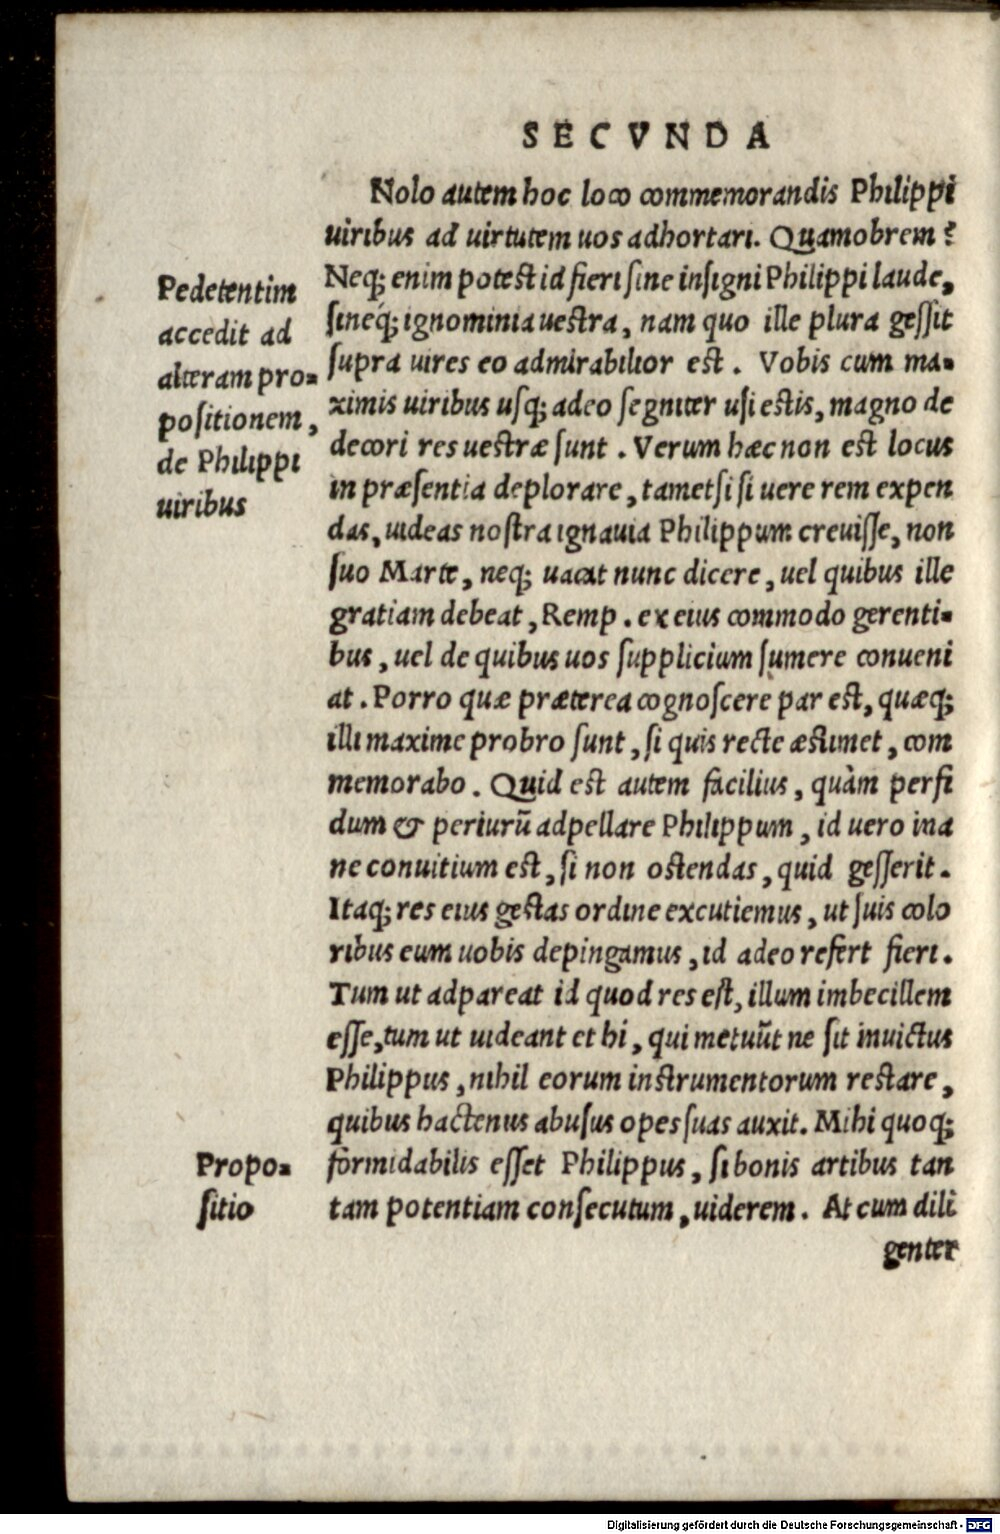 SECVNDA
Nolo autem hoc loco commemorandis Philippi
uiribus ad uirtutem uos adhortari. Quamobrem?
Neq; enim potest id fieri sine insigni Philippi laude,
sineq́; ignominia uestra, nam quo ille plura gessit
supra uires eo admirabilior est. Vobis cum ma-
ximis uiribus usq; adeo segniter usi estis, magno de
decori res uestræ sunt. Verum hæc non est locus
in præsentia deplorare, tametsi si uere rem expen
das, uideas nostra ignauia Philippum creuisse, non
suo Marte, neq; uacat nunc dicere, uel quibus ille
gratiam debeat, Remp. ex eius commodo gerenti-
bus, uel de quibus uos supplicium sumere conueni
at. Porro quæ præterea cognoscere par est, quæq;
illi maxime probro sunt, si quis recte æstimet, com
memorabo. Quid est autem facilius, quàm perfi
dum & periurũ adpellare Philippum, id uero ina
ne conuitium est, si non ostendas, quid gesserit.
Itaq; res eius gestas ordine excutiemus, ut suis colo
ribus eum uobis depingamus, id adeo refert fieri.
Tum ut adpareat id quod res est, illum imbecillem
esse, tum ut uideant et hi, qui metuũt ne sit inuictus
Philippus, nihil eorum instrumentorum restare,
quibus hactenus abusus opes suas auxit. Mihi quoq;
formidabilis esset Philippus, si bonis artibus tan
tam potentiam consecutum, uiderem. At cum dili
genter
Pedetentim
accedit ad
alteram pro-
positionem,
de Philippi
uiribus
Propo-
sitio
Digitalisierung gefördert durch die Deutsche Forschungsgemeinschaft - DFG